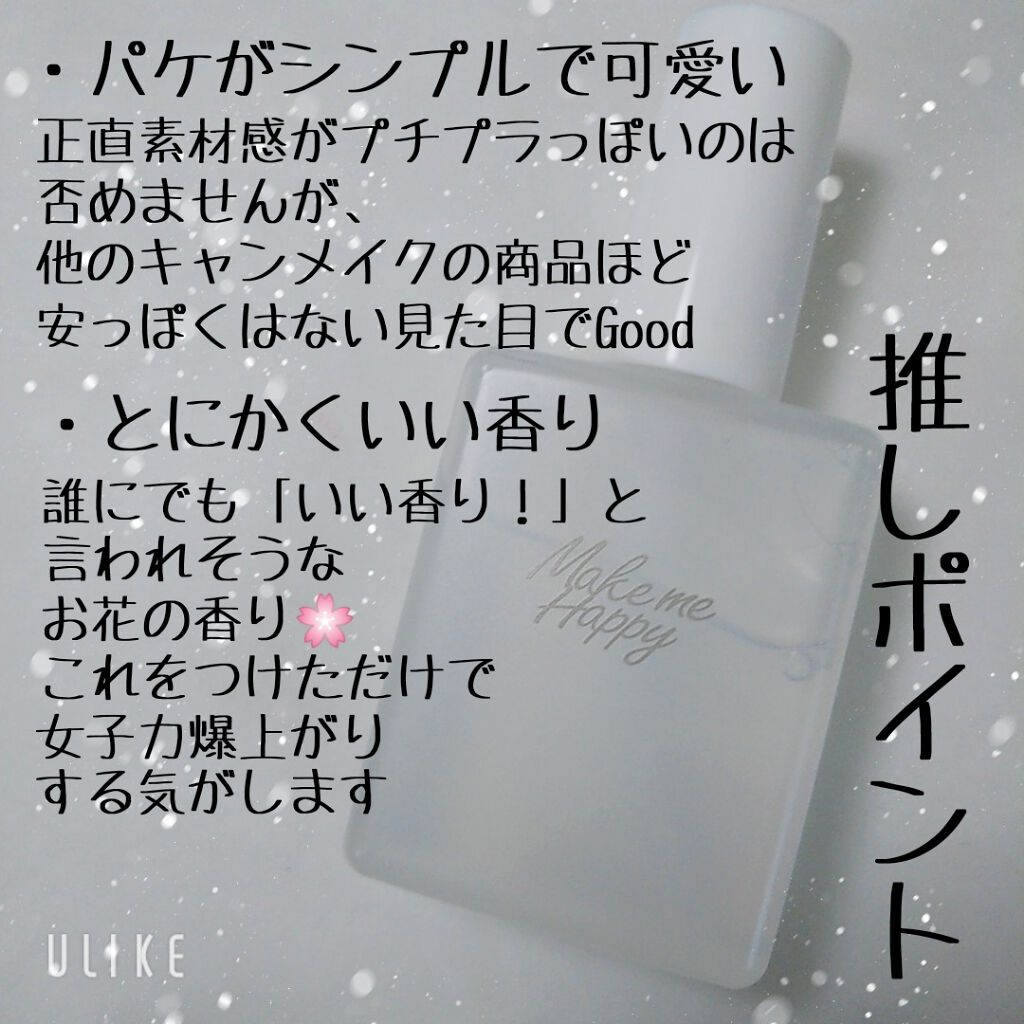 ・パケがシンプルで可愛い
正直素材感がプチプラっぽいのは
否めませんが、
他のキャンメイクの商品ほど
安っぽくはない見た目でGood
・とにかくいい香り
誰にでも「いい香り！」と
言われそうな
お花の香り🌸
これをつけただけで
女子力爆上がり
する気がします
推しポイント
Make me
Happy
ULIKE